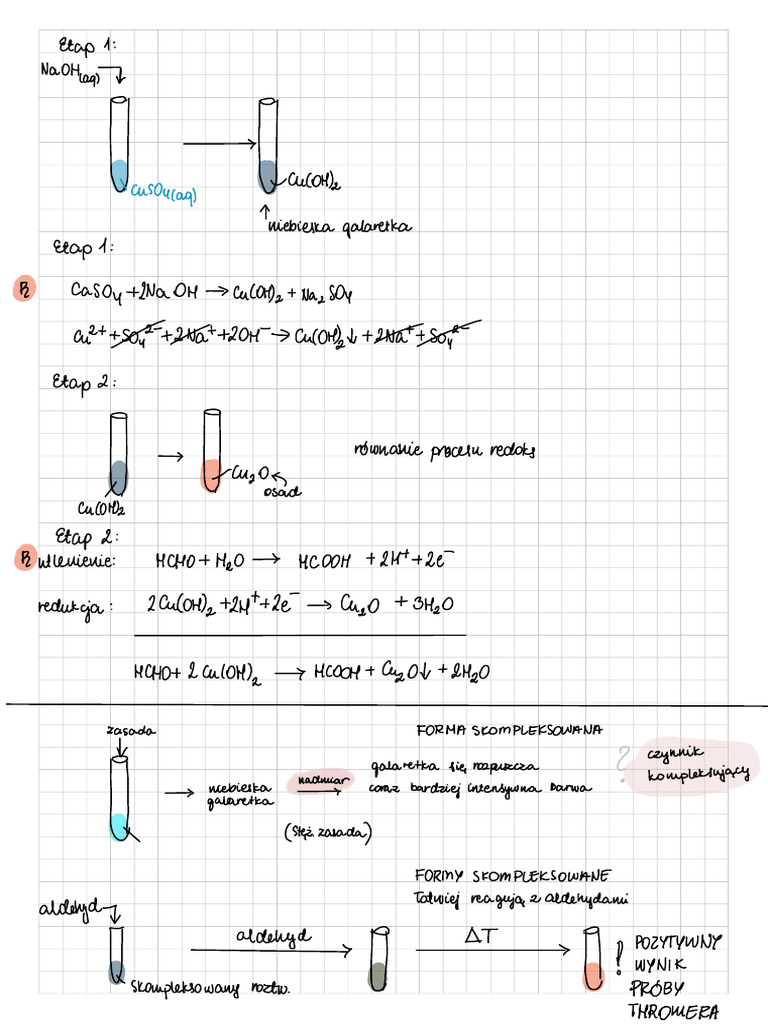 Etap 1:
NaOH(aq)
CuSO4(aq)
Cu(OH)2
↑
niebieska galaretka
Etap 1:
R CaSO4 + 2NaOH → Cu(OH)2 + Na2SO4
Cu²⁺ + SO4²⁻ + 2Na⁺ + 2OH⁻ → Cu(OH)2↓ + 2Na⁺ + SO4²⁻
Etap 2:
równanie procesu redoks
Cu2O
osad
Cu(OH)2
Etap 2:
R utlenienie: HCHO + H2O → HCOOH + 2H⁺ + 2e⁻
redukcja: 2Cu(OH)2 + 2H⁺ + 2e⁻ → Cu2O + 3H2O
HCHO + 2Cu(OH)2 → HCOOH + Cu2O↓ + 2H2O
zasada
FORMA SKOMPLEKSOWANA
→ niebieska galaretka
nadmiar →
(stęż. zasada)
galaretka się rozpuszcza
coraz bardziej intensywna barwa
?
czynnik
kompleksujący
FORMY SKOMPLEKSOWANE
łatwiej reagują z aldehydami
aldehyd
aldehyd
ΔT
skompleksowany roztw.
!
POZYTYWNY
WYNIK
PRÓBY
THROMERA